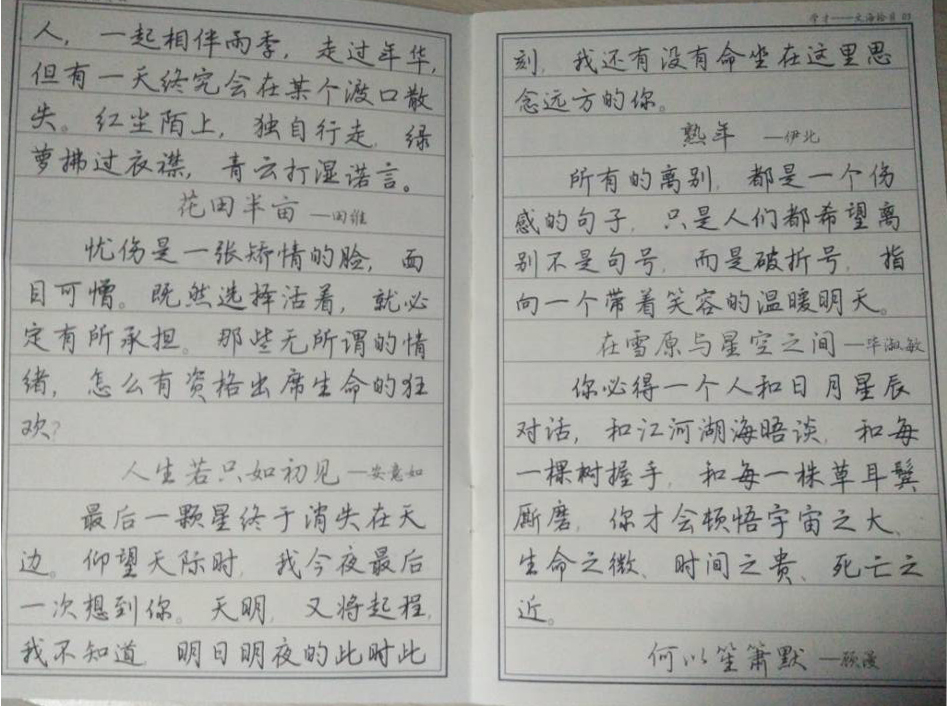 人，一起相伴雨季，走过年华，
但有一天终究会在某个渡口散
失。红尘陌上，独自行走，绿
萝拂过衣襟，青云打湿诺言。
花田半亩 —田维
忧伤是一张矫情的脸，面
目可憎。既然选择活着，就必
定有所承担。那些无所谓的情
绪，怎么有资格出席生命的狂
欢？
人生若只如初见 —安意如
最后一颗星终于消失在天
边。仰望天际时，我今夜最后
一次想到你。天明，又将起程，
我不知道，明日明夜的此时此
刻，我还有没有命坐在这里思
念远方的你。
熟年 —伊北
所有的离别，都是一个伤
感的句子，只是人们都希望离
别不是句号，而是破折号，指
向一个带着笑容的温暖明天。
在雪原与星空之间 —毕淑敏
你必得一个人和日月星辰
对话，和江河湖海晤谈，和每
一棵树握手，和每一株草耳鬓
厮磨，你才会顿悟宇宙之大、
生命之微、时间之贵、死亡之
近。
何以笙箫默 —顾漫